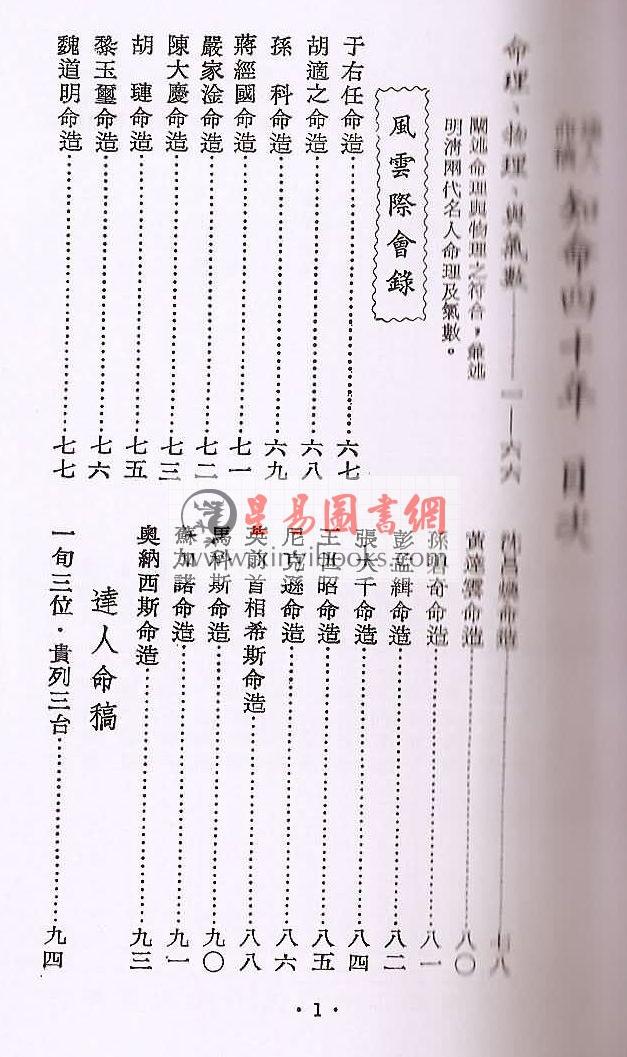 知命四十年 目次
命理、物理、與氣數——一—六六
闡述命理與物理之符合，兼述
明清兩代名人命理及氣數。
風雲際會錄
于右任命造……六七
胡適之命造……六八
孫 科命造……六九
蔣經國命造……七一
嚴家淦命造……七二
陳大慶命造……七三
胡 璉命造……七五
黎玉璽命造……七六
魏道明命造……七七
沈昌煥命造……七八
黃達雲命造……八〇
孫碧奇命造……八一
彭孟緝命造……八二
張大千命造……八四
王世昭命造……八五
尼克遜命造……八六
英前首相希斯命造……八八
馬科斯命造……九〇
蘇加諾命造……九一
奧納西斯命造……九三
達人命稿
一旬三位·貴列三台……九四
·1·
星易圖書網
www.xinyibooks.com